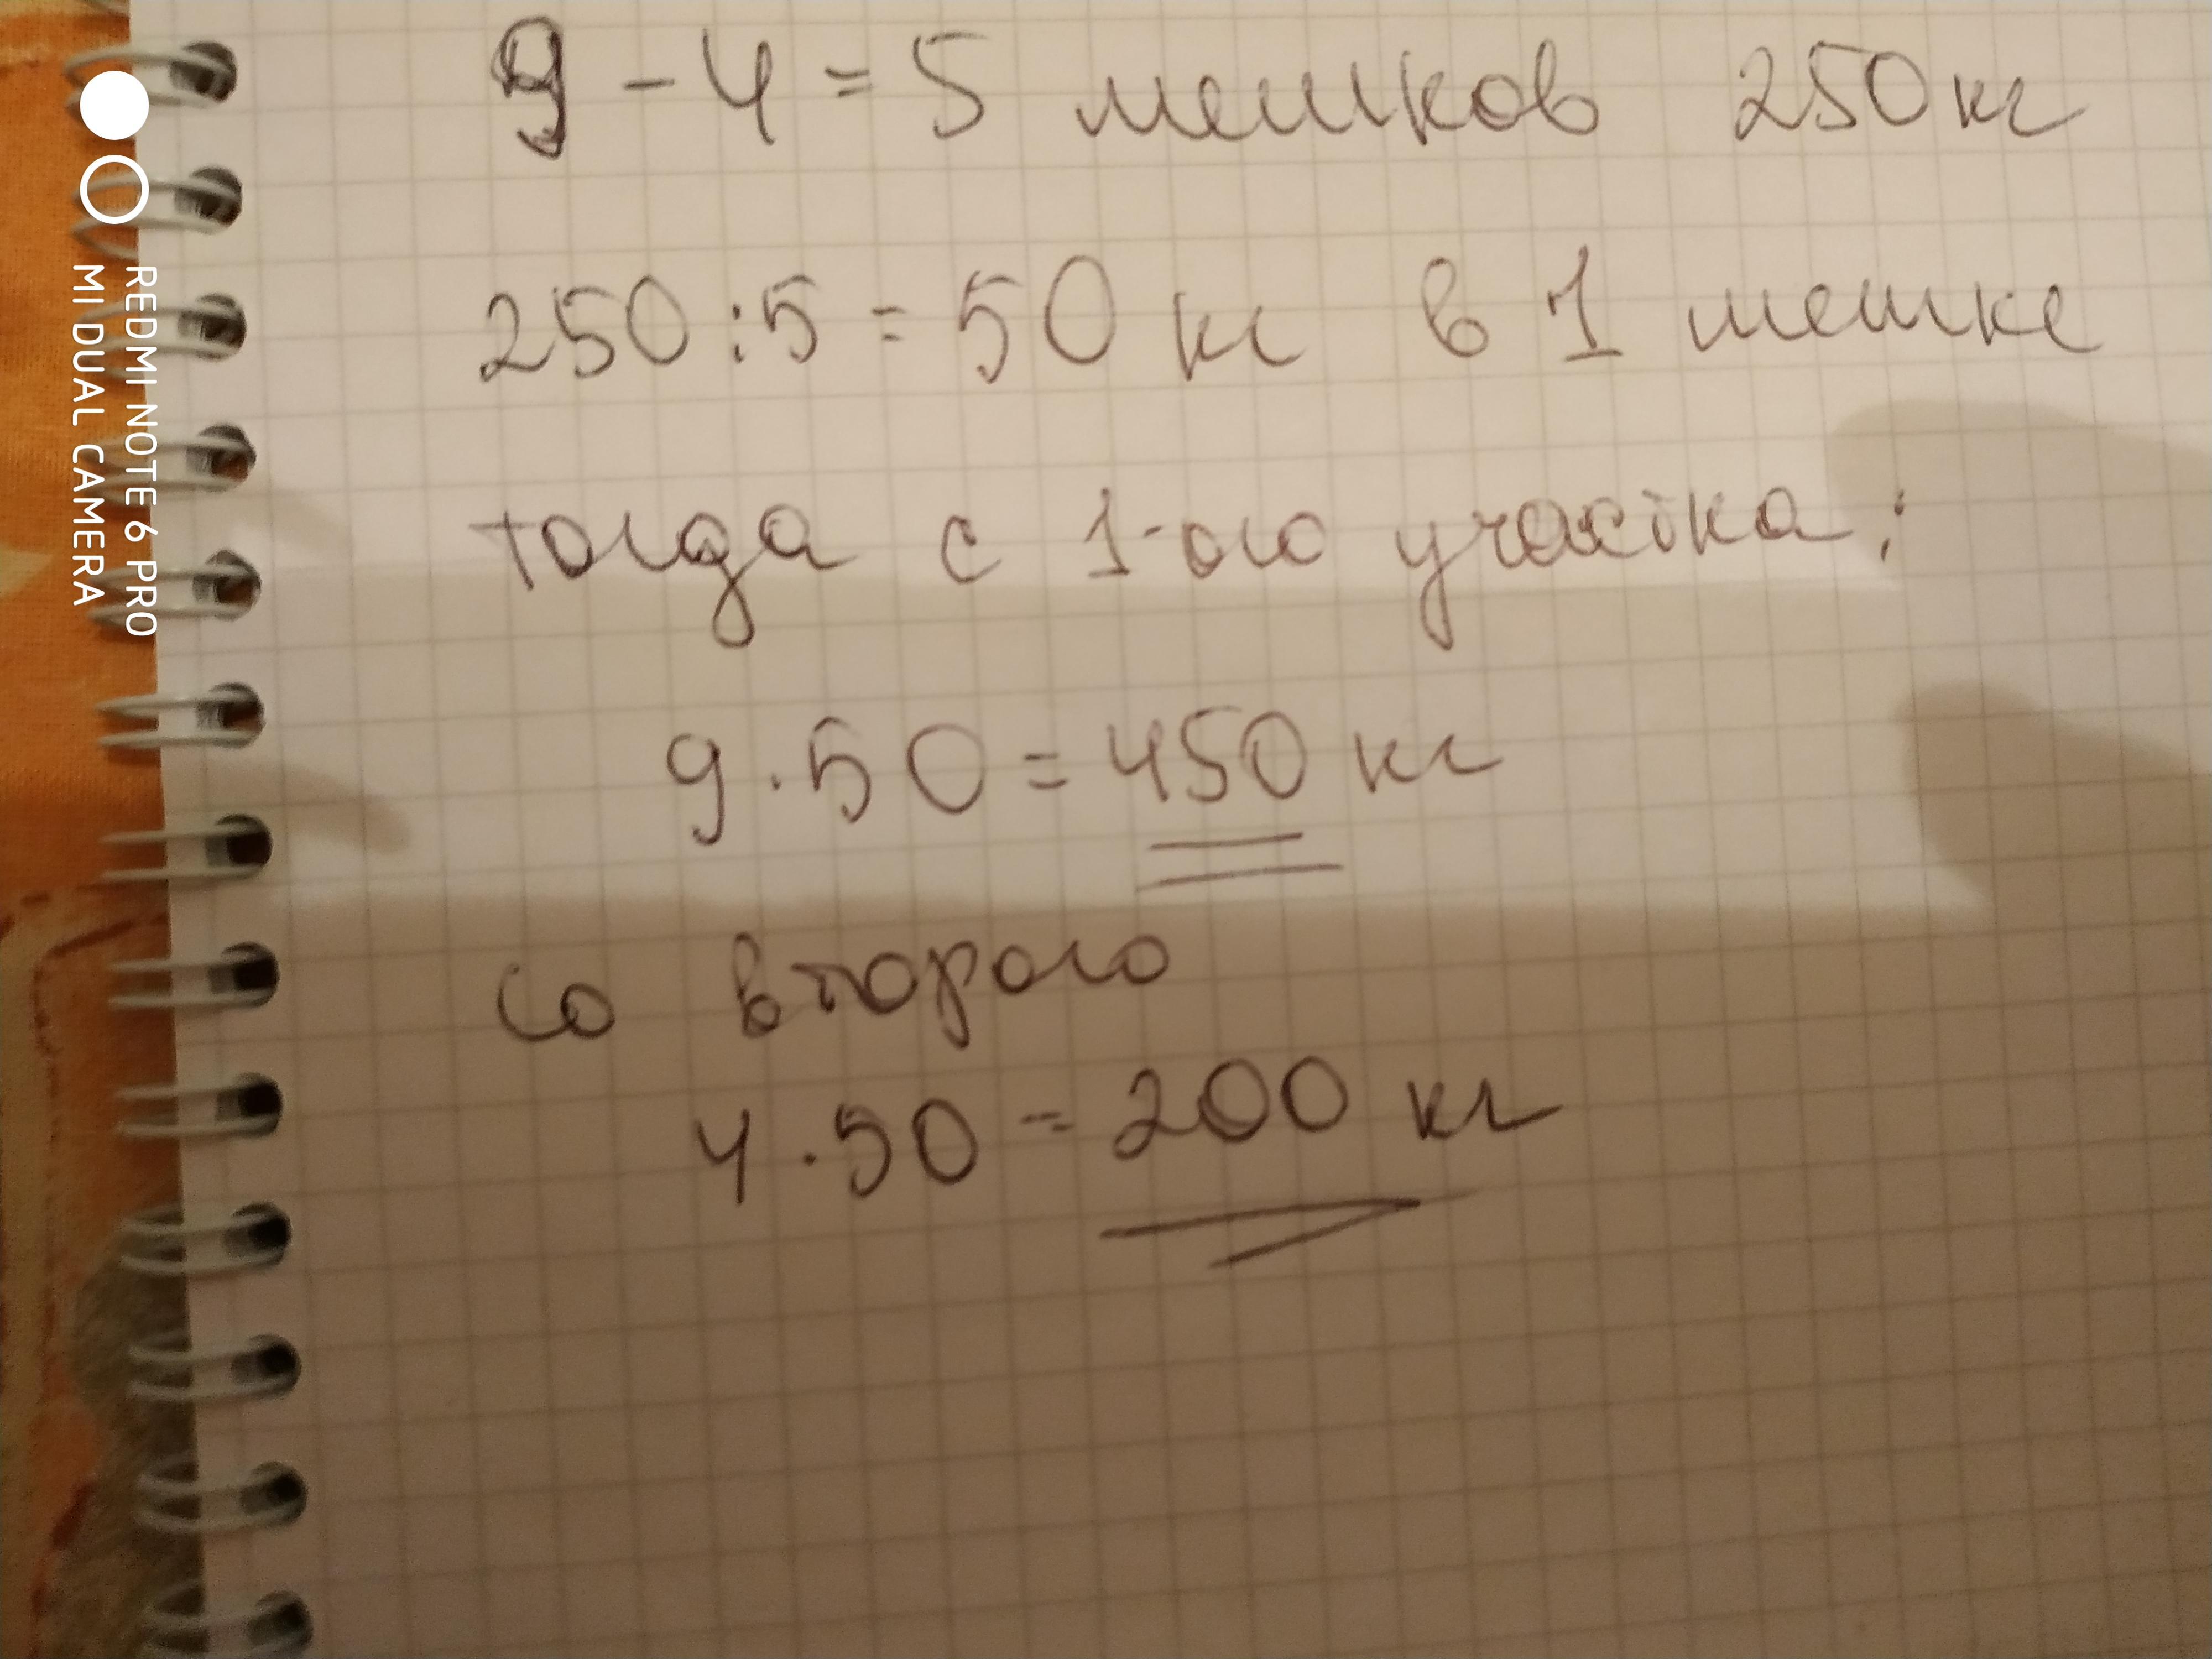 9 - 4 = 5 мешков 250 кг
250 : 5 = 50 кг в 1 мешке
тогда с 1-ого участка:
9 · 50 = 450 кг
со второго
4 · 50 = 200 кг
REDMI NOTE 6 PRO
MI DUAL CAMERA